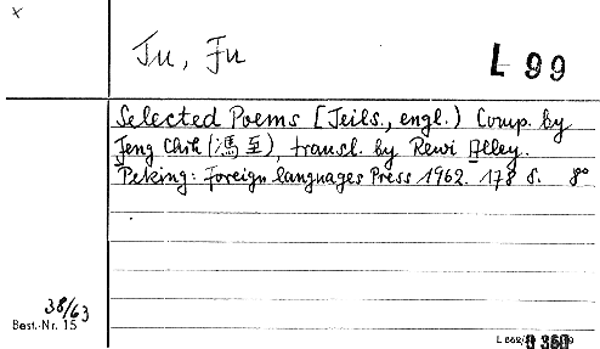 x
Tu, Fu
L 99
Selected Poems [Teils., engl.) Comp. by
Feng Chih (馮至), transl. by Rewi Alley.
Peking: Foreign languages Press 1962. 178 S. 8°
38/63
Best.-Nr. 15
0 360